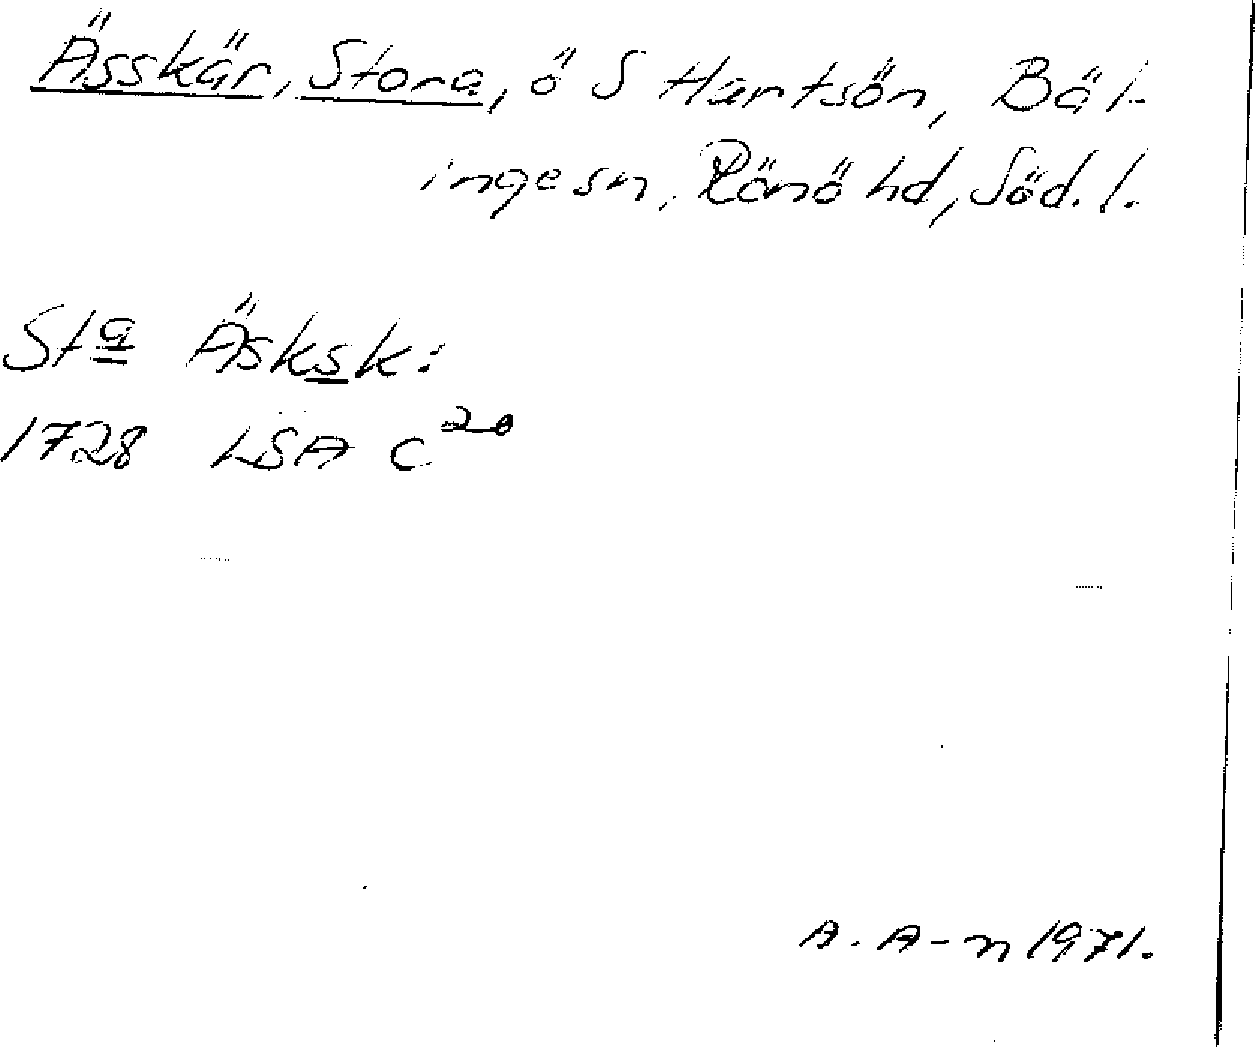 Ässkär, Stora, ö S Hartsön, Bäl-
ingesn, Rönö hd, Söd.l.
Sta Äsksk:
1728 LSA C20
A. A-n 1971.